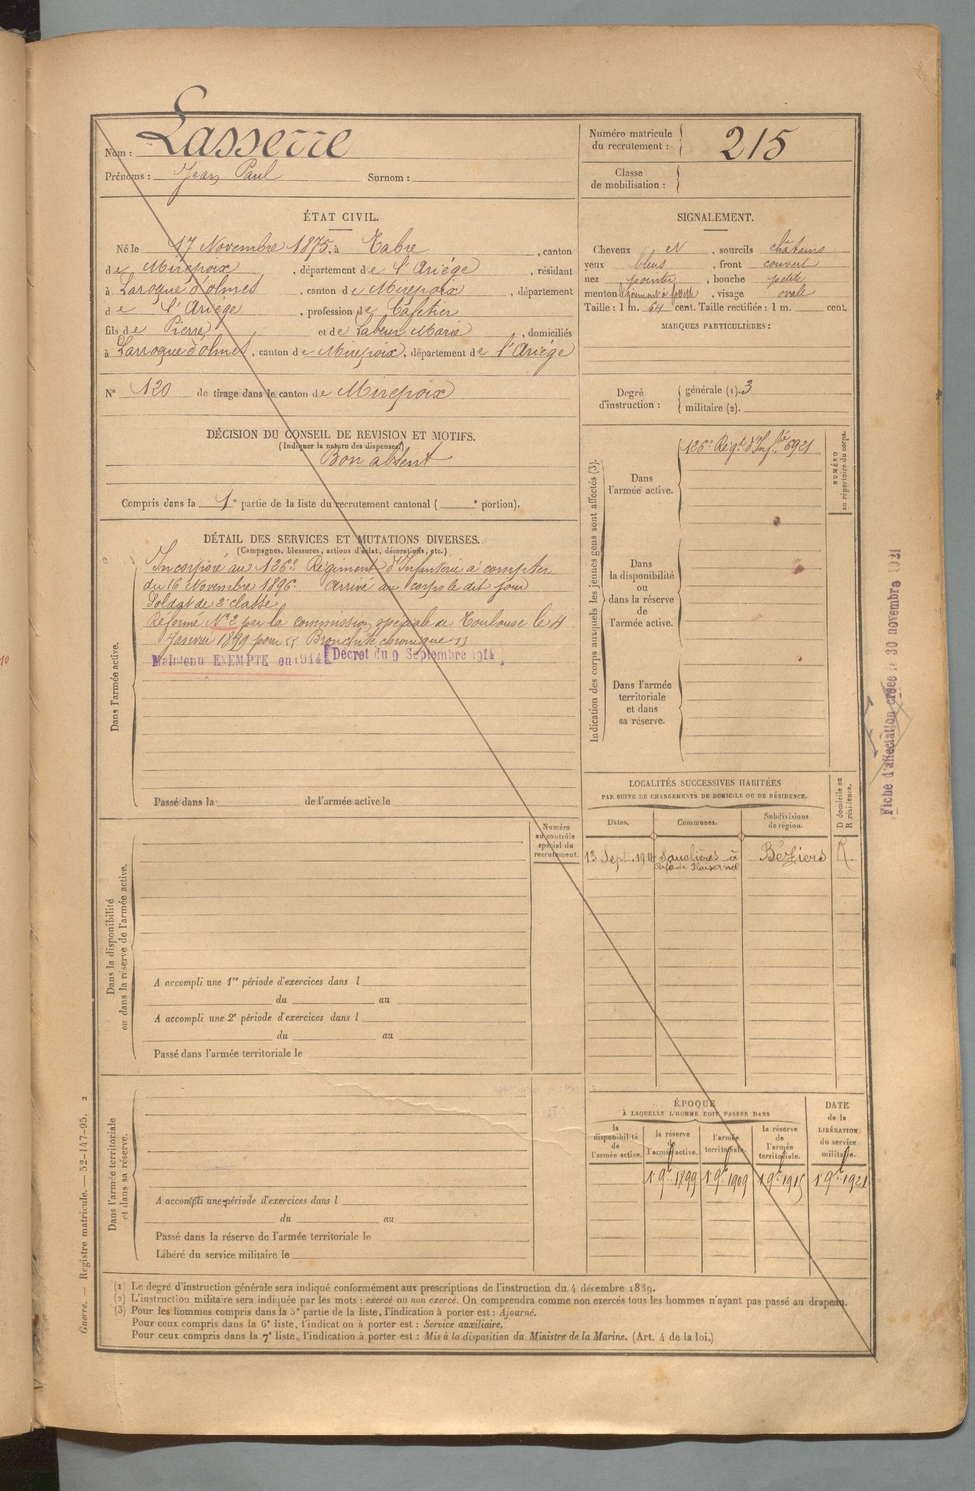 Nom : Lasserre
Prénoms : Jean Paul Surnom :
Numéro matricule du recrutement : 215
Classe de mobilisation :
ÉTAT CIVIL.
Né le 17 Novembre 1875, à Tabre, canton
de Mirepoix, département de l'Ariége, résidant
à Laroque d'olmes, canton de Mirepoix, département
de l'Ariége, profession d Cafetier
fils de Pierre et de Marie, domiciliés
à Larroque d'olmes, canton de Mirepoix, département de l'Ariége
N° 120 de tirage dans le canton de Mirepoix
SIGNALEMENT.
Cheveux N, sourcils châtains
yeux bleus, front couvert
nez pointu, bouche petite
menton, visage ovale
Taille : 1 m. 64 cent. Taille rectifiée : 1 m. cent.
MARQUES PARTICULIÈRES :
Degré d'instruction : générale (1). 3
militaire (2).
DÉCISION DU CONSEIL DE REVISION ET MOTIFS.
(Indiquer la nature des dispenses.)
Bon absent
Compris dans la 1e partie de la liste du recrutement cantonal ( e portion).
DÉTAIL DES SERVICES ET MUTATIONS DIVERSES.
(Campagnes, blessures, actions d'éclat, décorations, etc.)
Dans l'armée active.
Incorporé au 126e Régiment d'Infanterie à compter
du 16 Novembre 1896. Arrivé au corps le dit jour
Soldat de 2e classe
Réformé N° 2 par la commission spéciale de Toulouse le 4
Janvier 1899 pour « Bronchite chronique »
Maintenu EXEMPTÉ en 1914 [Décret du 9 Septembre 1914]
Passé dans la de l'armée active le
Indication des corps auxquels les jeunes gens sont affectés (3).
NUMÉRO au répertoire du corps.
Dans l'armée active.
126e Régt d'Infie 6921
Dans la disponibilité ou dans la réserve de l'armée active.
Dans l'armée territoriale et dans sa réserve.
Fiche d'affectation créée le 30 novembre 1921
LOCALITÉS SUCCESSIVES HABITÉES
PAR SUITE DE CHANGEMENTS DE DOMICILE OU DE RÉSIDENCE.
Dates. Communes. Subdivisions de région. D domicile ou R résidence.
13 Sept. 1904 Sauclières Béziers R.
Dans la disponibilité ou dans la réserve de l'armée active.
Numéro au contrôle spécial du recrutement.
A accompli une 1re période d'exercices dans l
du au
A accompli une 2e période d'exercices dans l
du au
Passé dans l'armée territoriale le
Dans l'armée territoriale et dans sa réserve.
A accompli une période d'exercices dans l
du au
Passé dans la réserve de l'armée territoriale le
Libéré du service militaire le
ÉPOQUE
À LAQUELLE L'HOMME DOIT PASSER DANS
la disponibilité de l'armée active. la réserve de l'armée active. l'armée territoriale. la réserve de l'armée territoriale. DATE de la LIBÉRATION du service militaire.
1 9bre 1899 1 9bre 1909 1 9bre 1915 1 9bre 1921
(1) Le degré d'instruction générale sera indiqué conformément aux prescriptions de l'instruction du 4 décembre 1889.
(2) L'instruction militaire sera indiquée par les mots : exercé ou non exercé. On comprendra comme non exercés tous les hommes n'ayant pas passé au drapeau.
(3) Pour les hommes compris dans la 5e partie de la liste, l'indication à porter est : Ajourné.
Pour ceux compris dans la 6e liste, l'indication à porter est : Service auxiliaire.
Pour ceux compris dans la 7e liste, l'indication à porter est : Mis à la disposition du Ministre de la Marine. (Art. 4 de la loi.)
Guerre. — Registre matricule. — 52-147-95. 2